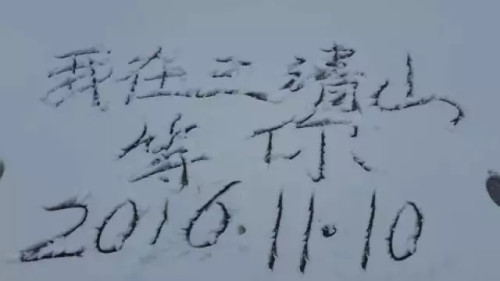 我在三清山
等你
2016.11.10